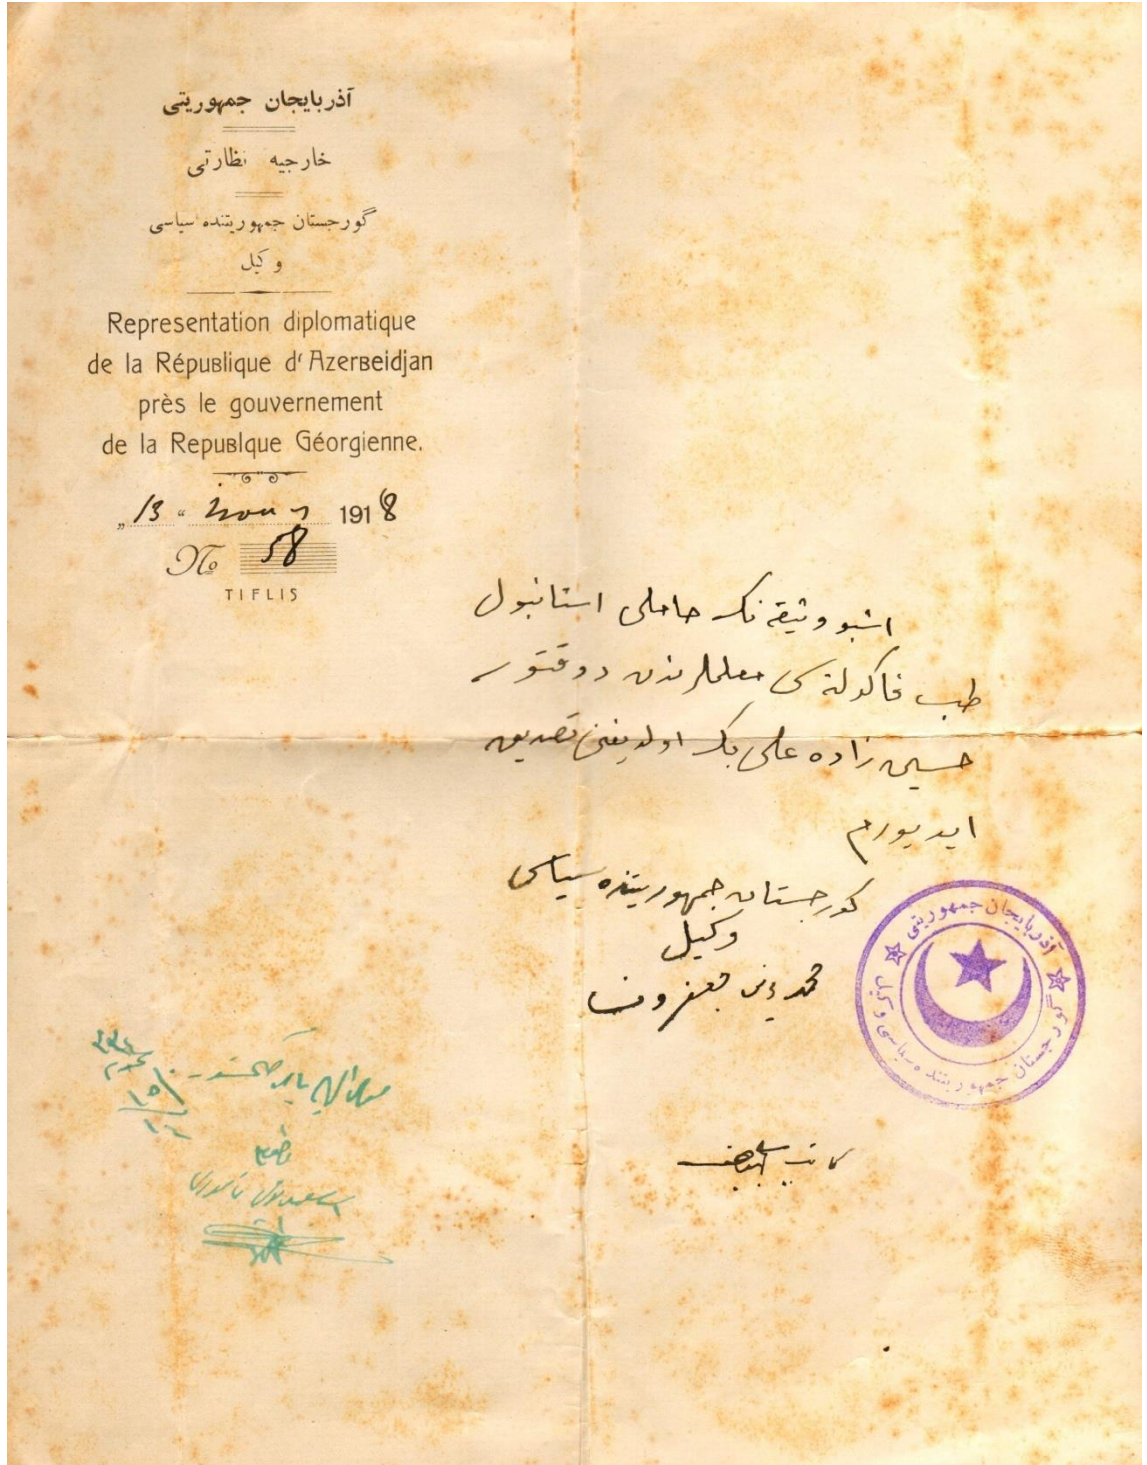 آذربایجان جمهوریتی
خارجیه نظارتی
گورجستان جمهوریتنده سیاسی
وکیل
Representation diplomatique
de la République d'Azerbeidjan
près le gouvernement
de la Republque Géorgienne.
„13“ 1918
№ 58
TIFLIS
اشبو وثیقه نک حاملی استانبول
طب فاکولته سی معلملرندن دوقتور
حسین زاده علی بک اولدیغنی تصدیق
ایدیورم
کورجستان جمهوریتنده سیاسی
وکیل
محمد یوسف جعفروف
آذربایجان جمهوریتی
گورجستان جمهوریتنده سیاسی وکیل
کاتب